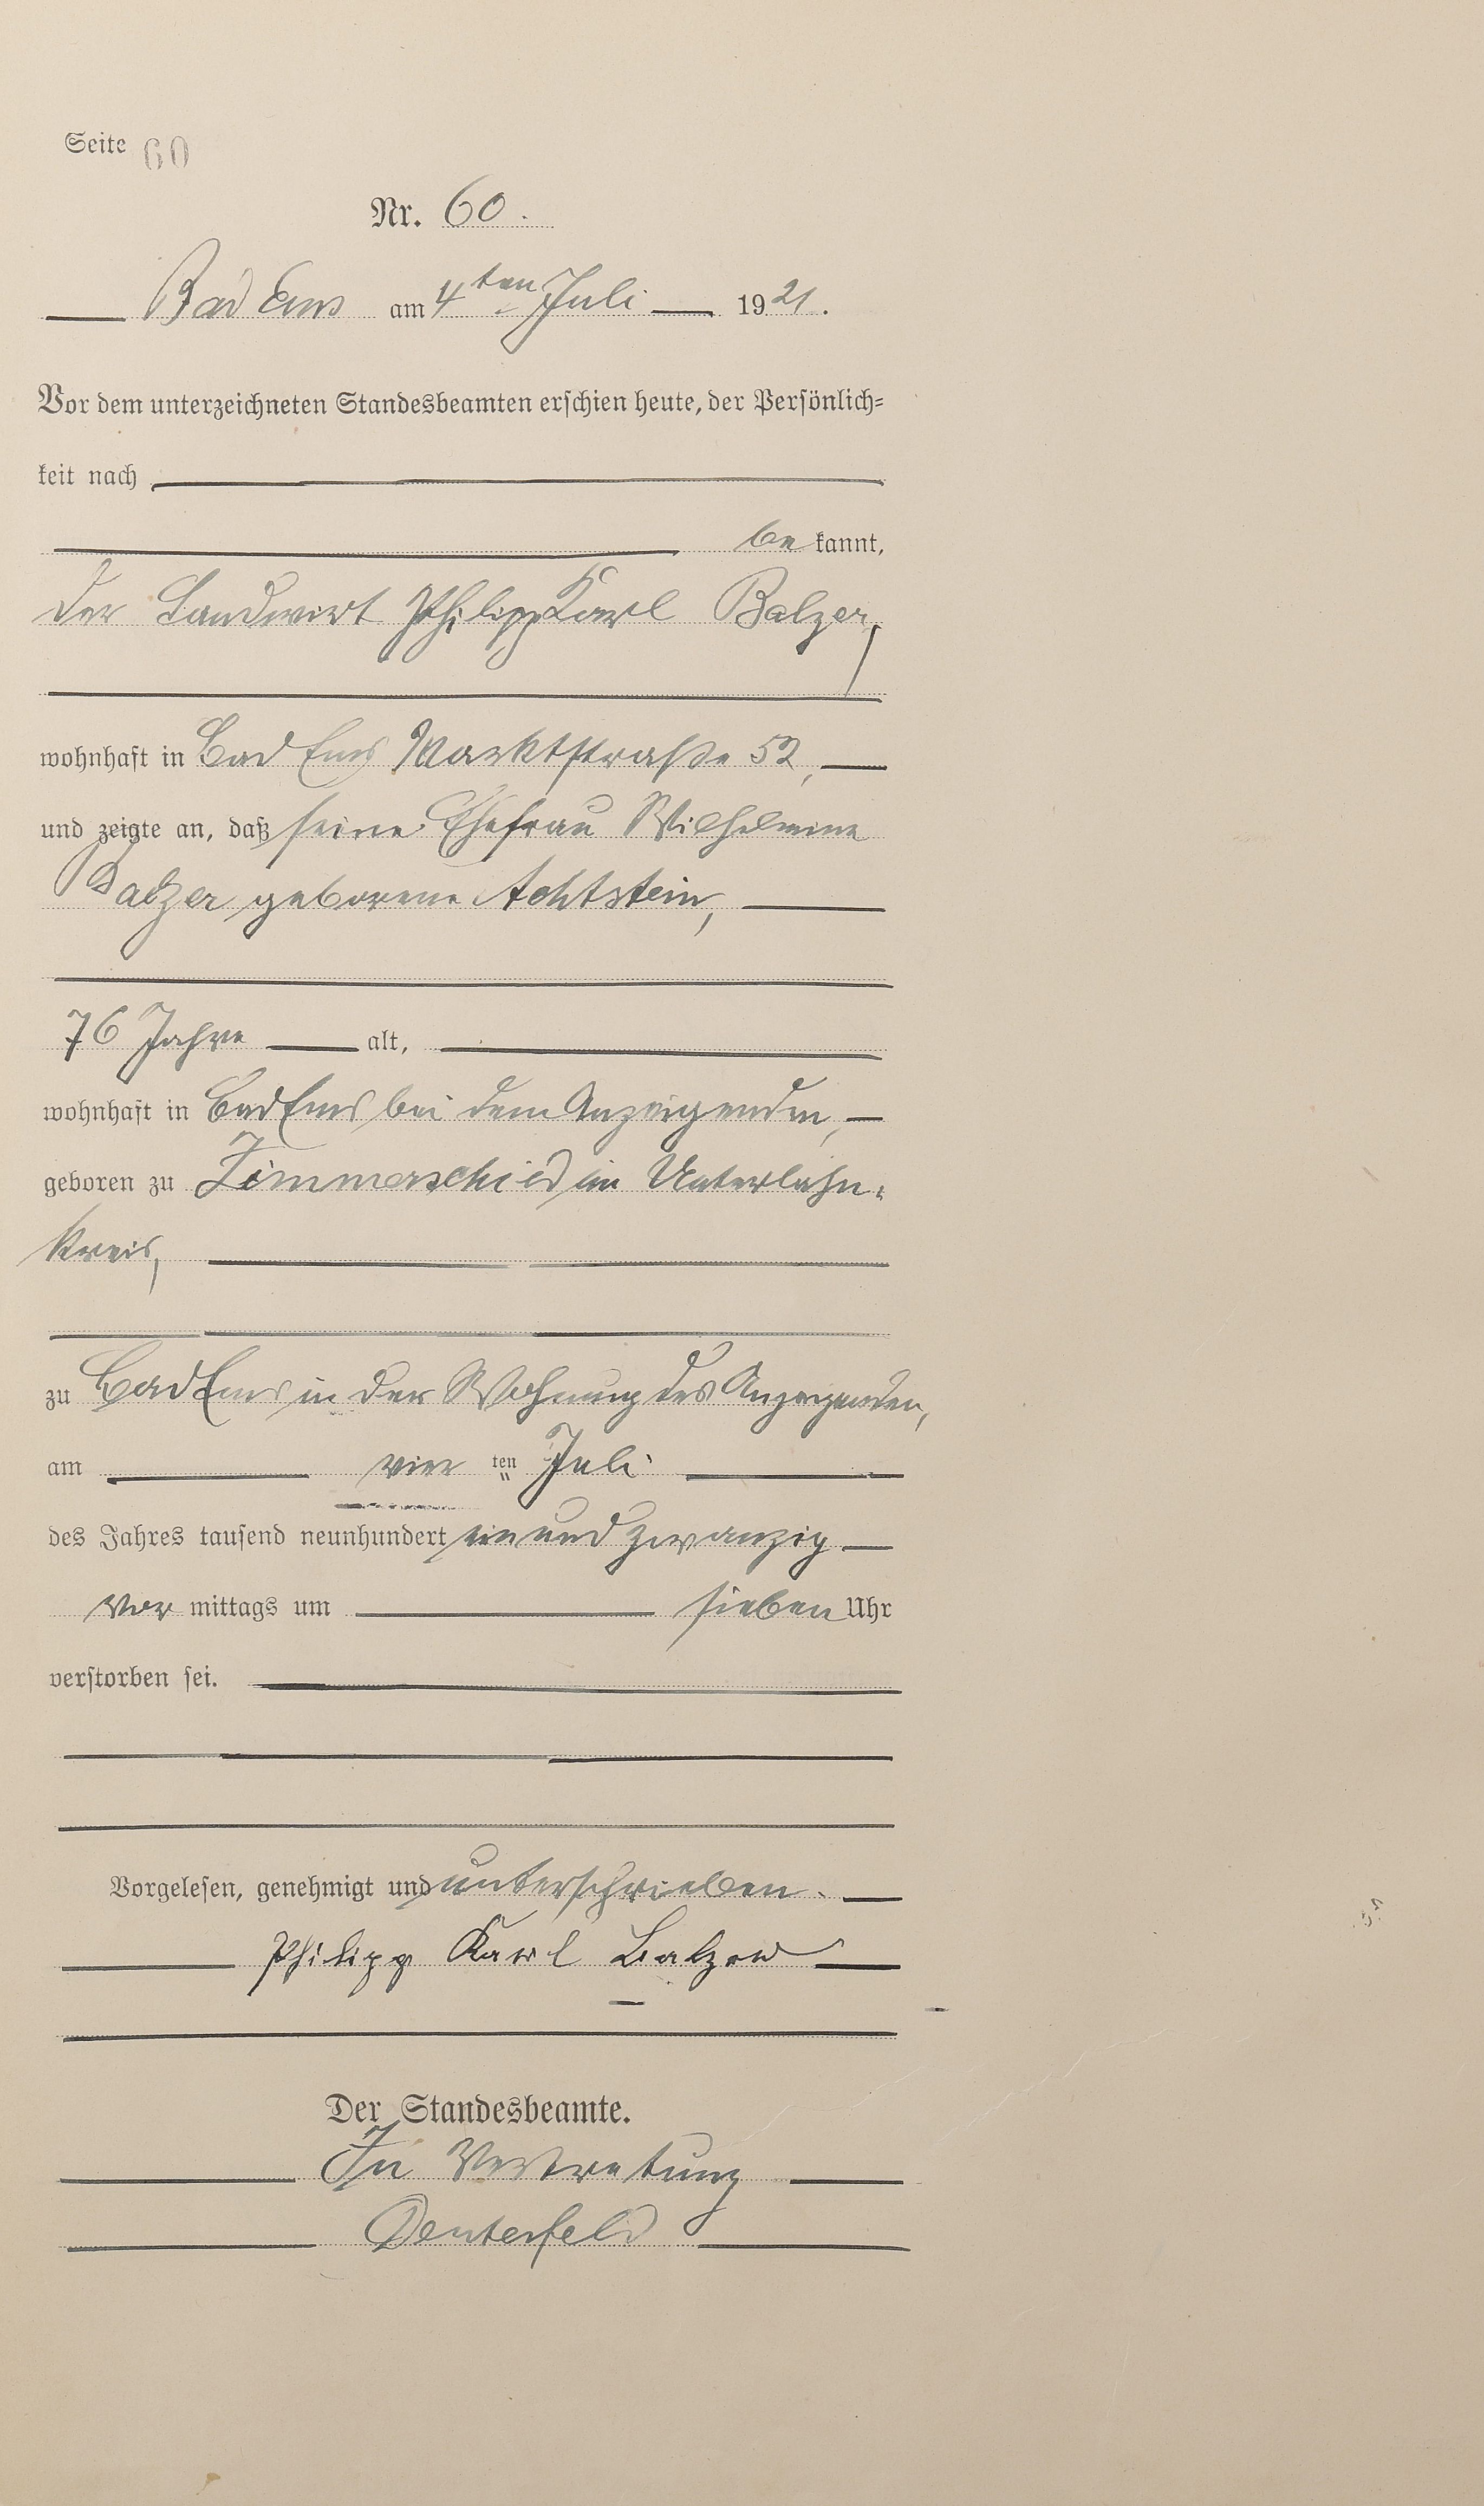 Seite 60
Nr. 60.
Bad Ems am 4ten Juli 1921.
Vor dem unterzeichneten Standesbeamten erschien heute, der Persönlich-
keit nach
bekannt,
der Landwirt Philipp Karl Balzer,
wohnhaft in Bad Ems Marktstraße 52,
und zeigte an, daß seine Ehefrau Wilhelmine
Balzer geborene Achtstein,
76 Jahre alt,
wohnhaft in Bad Ems bei dem Anzeigenden,
geboren zu Zimmerschied im Unterlahn-
kreis,
zu Bad Ems in der Wohnung des Anzeigenden,
am vier ten Juli
des Jahres tausend neunhundert ein und zwanzig
vor mittags um sieben Uhr
verstorben sei.
Vorgelesen, genehmigt und unterschrieben.
Philipp Karl Balzer
Der Standesbeamte.
In Vertretung